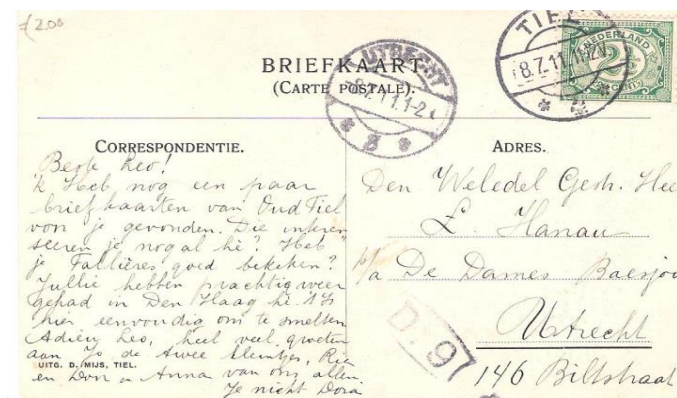 ƒ 2.00
BRIEFKAART
(CARTE POSTALE).
UTRECHT
8.7.11.1-2
TIEL
8.7.11.11-12V.
NEDERLAND
2½
CENT
CORRESPONDENTIE.
Beste Leo!
'k Heb nog een paar
briefkaarten van Oud Tiel
voor je gevonden. Die interes-
seeren je nog al hè? Heb
je Fallières goed bekeken?
Jullie hebben prachtig weer
gehad in Den Haag hè. 't Is
hier eenvoudig om te smelten
Adieu Leo, heel veel groeten
aan Jo de twee kleintjes, Rie
en Don en Anna van ons allen.
Je nicht Dora
UITG. D. MIJS, TIEL.
ADRES.
Den Weledel Gestr. Hee
L. Hanau
p/a De Dames Baerjou
Utrecht
146 Biltstraat
D. 97